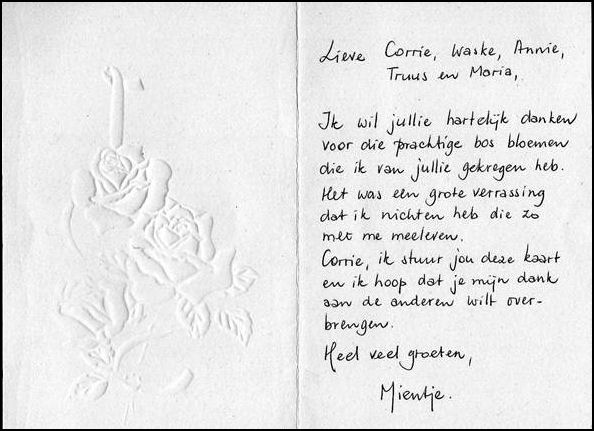 Lieve Corrie, Waske, Annie,
Truus en Maria,
Ik wil jullie hartelijk danken
voor die prachtige bos bloemen
die ik van jullie gekregen heb.
Het was een grote verrassing
dat ik nichten heb die zo
met me meeleven.
Corrie, ik stuur jou deze kaart
en ik hoop dat je mijn dank
aan de anderen wilt over-
brengen.
Heel veel groeten,
Mientje.